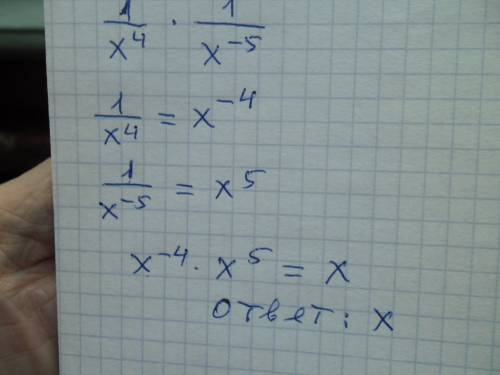 1/x⁴ · 1/x⁻⁵
1/x⁴ = x⁻⁴
1/x⁻⁵ = x⁵
x⁻⁴ · x⁵ = x
ответ: x